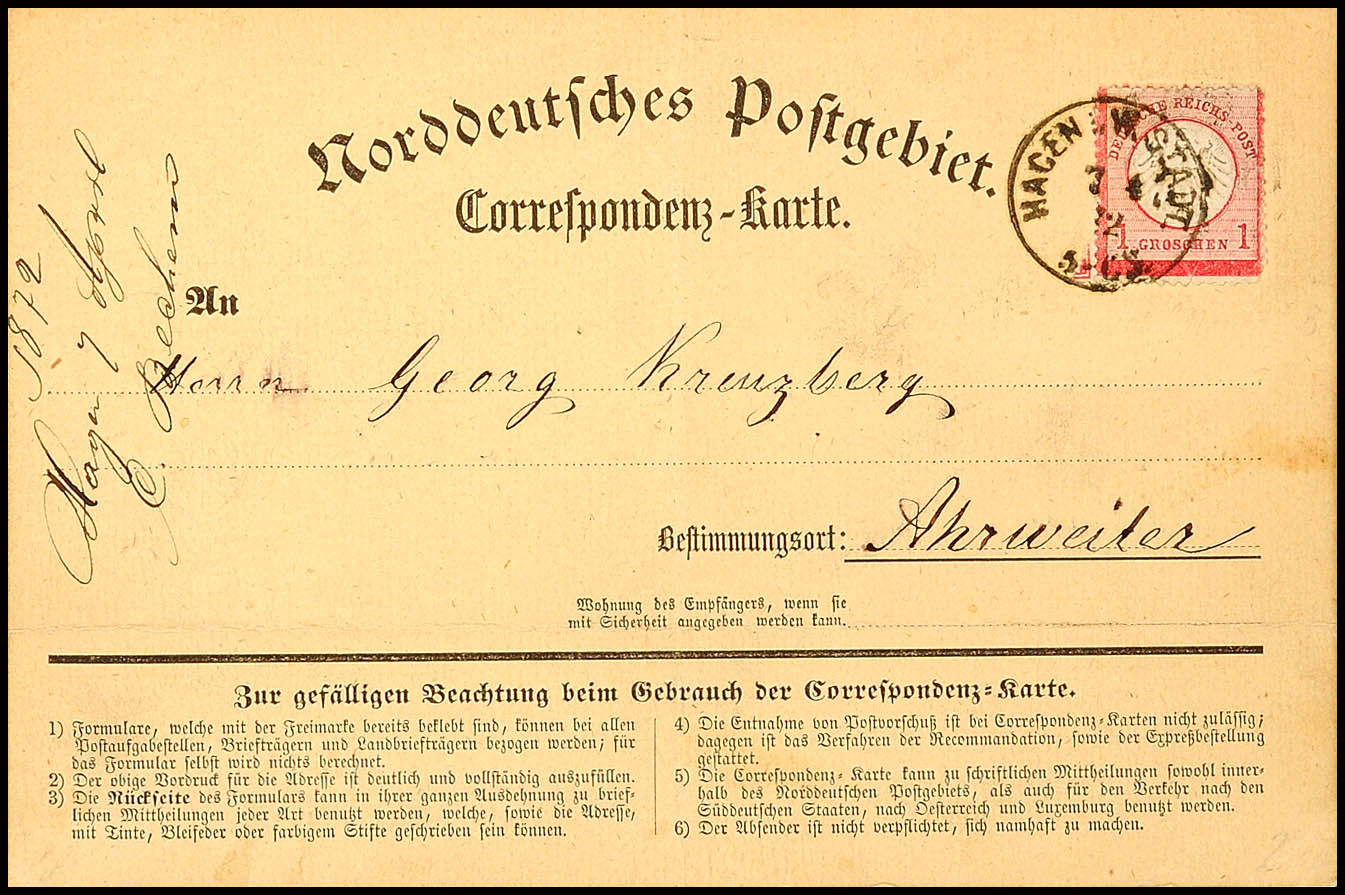 Norddeutsches Postgebiet.
Correspondenz-Karte.
DEUTSCHE REICHS-POST
1 GROSCHEN 1
HAGEN STADT
1872
Hagen 7 April
An
Herrn Georg Kreuzberg
Bestimmungsort: Ahrweiler
Wohnung des Empfängers, wenn sie
mit Sicherheit angegeben werden kann.
Zur gefälligen Beachtung beim Gebrauch der Correspondenz-Karte.
1) Formulare, welche mit der Freimarke bereits beklebt sind, können bei allen
Postaufgabestellen, Briefträgern und Landbriefträgern bezogen werden; für
das Formular selbst wird nichts berechnet.
2) Der obige Vordruck für die Adresse ist deutlich und vollständig auszufüllen.
3) Die Rückseite des Formulars kann in ihrer ganzen Ausdehnung zu brief-
lichen Mittheilungen jeder Art benutzt werden, welche, sowie die Adresse,
mit Tinte, Bleifeder oder farbigem Stifte geschrieben sein können.
4) Die Entnahme von Postvorschuß ist bei Correspondenz-Karten nicht zulässig;
dagegen ist das Verfahren der Recommandation, sowie der Expreßbestellung
gestattet.
5) Die Correspondenz-Karte kann zu schriftlichen Mittheilungen sowohl inner-
halb des Norddeutschen Postgebiets, als auch für den Verkehr nach den
Süddeutschen Staaten, nach Oesterreich und Luxemburg benutzt werden.
6) Der Absender ist nicht verpflichtet, sich namhaft zu machen.